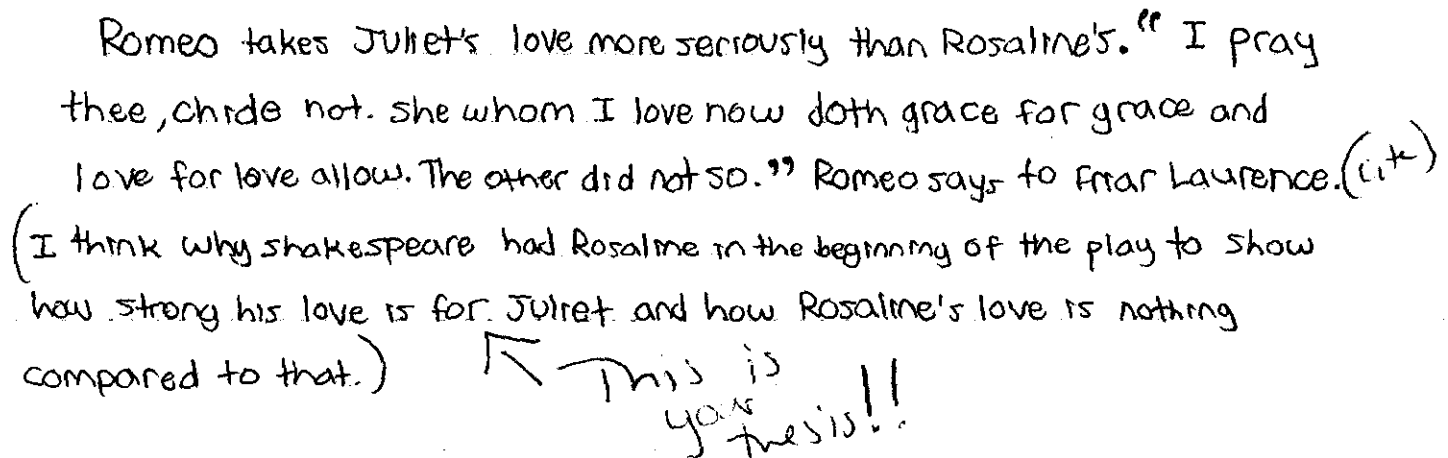 Romeo takes Juliet's love more seriously than Rosaline's. "I pray
thee, chide not. she whom I love now doth grace for grace and
love for love allow. The other did not so." Romeo says to Friar Laurence. (cit)
(I think why shakespeare had Rosaline in the beginning of the play to show
how strong his love is for Juliet and how Rosaline's love is nothing
compared to that.)
This is
your
thesis!!